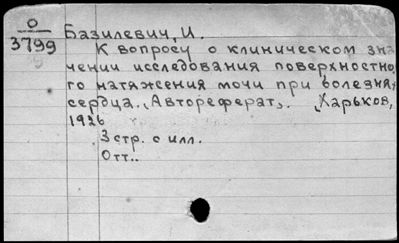 О
3799
Базилевич, И.
К вопросу о клиническом зна
чении исследования поверхностно
го натяжения мочи при болезнях
сердца. /Автореферат/. Харьков,
1926
3 стр. с илл.
Отт..